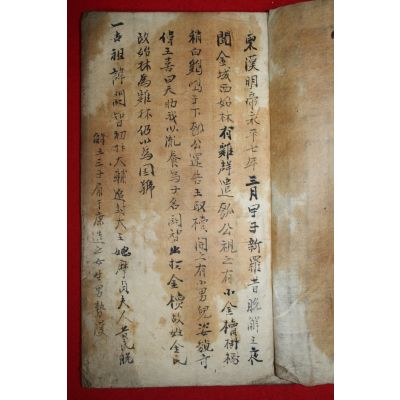 東漢明帝永平七年三月甲子新羅昔脫解王夜
聞金城西始林有雞聲遣瓠公視之有小金櫝樹
稍白鷄鳴于下瓠公還告王取櫝開之有小男兒姿貌奇
偉王喜曰天助我以胤養爲子名閼智出於金櫝故姓金氏
改始林爲雞林仍以爲國號
一世祖諱閼智初拜大輔追封大王 夫人昔氏脫
解王三子 康造之女生男勢漢